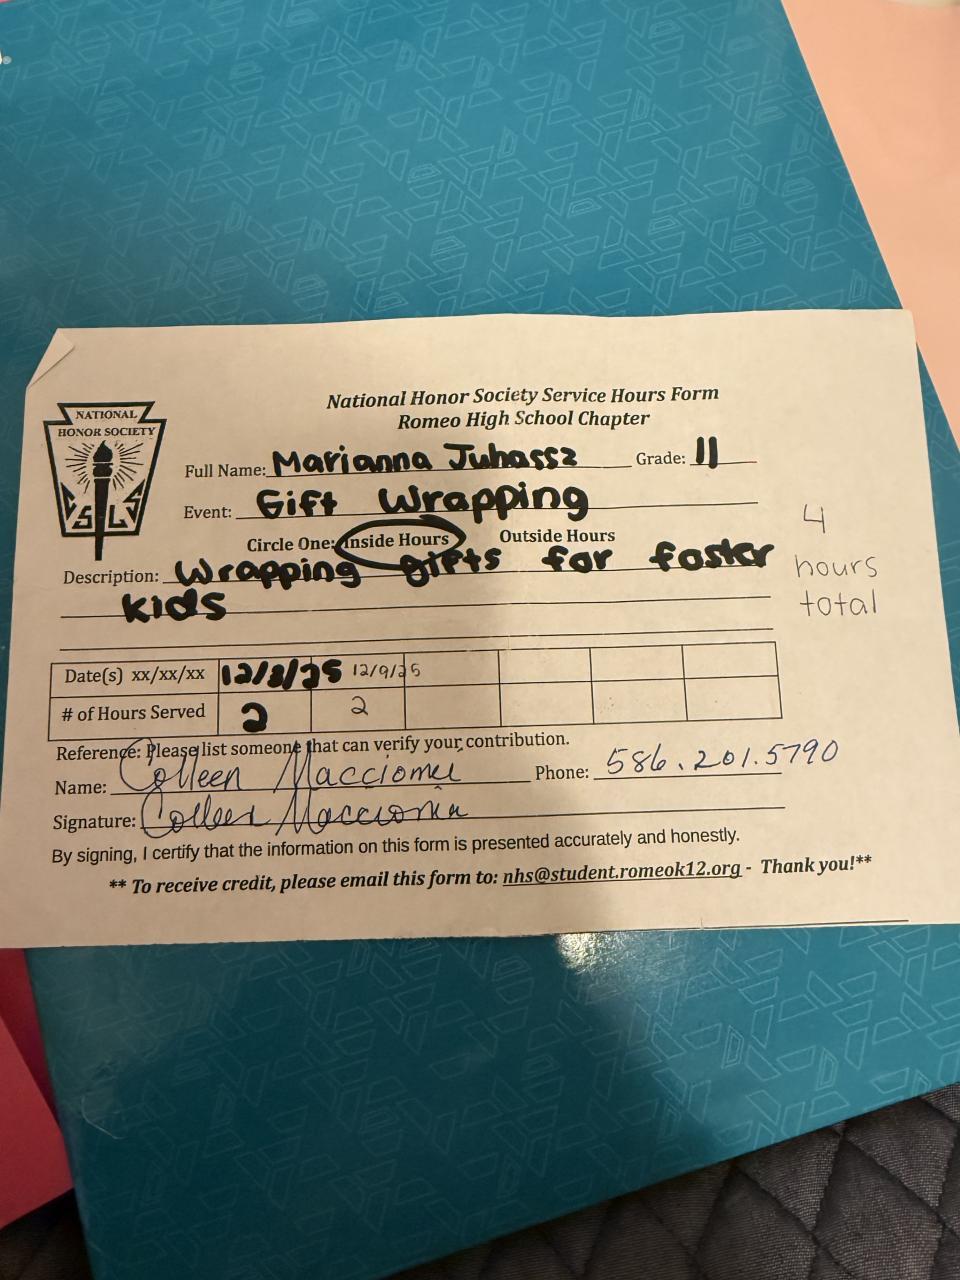 National Honor Society Service Hours Form
Romeo High School Chapter
NATIONAL
HONOR SOCIETY
S L S
Full Name: Marianna Juhassz Grade: 11
Event: Gift Wrapping
Circle One: Inside Hours Outside Hours
Description: Wrapping gifts for foster
kids
4
hours
total
Date(s) xx/xx/xx 12/8/25 12/9/25
# of Hours Served 2 2
Reference: Please list someone that can verify your contribution.
Name: Colleen Phone: 586.201.5790
Signature: Colleen
By signing, I certify that the information on this form is presented accurately and honestly.
** To receive credit, please email this form to: nhs@student.romeok12.org - Thank you!**